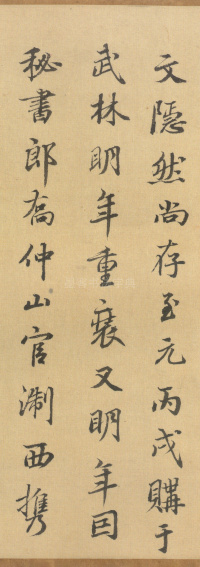 文隱然尚存至元丙戌購于
武林明年重裝又明年因
秘書郎喬仲山官淛西携